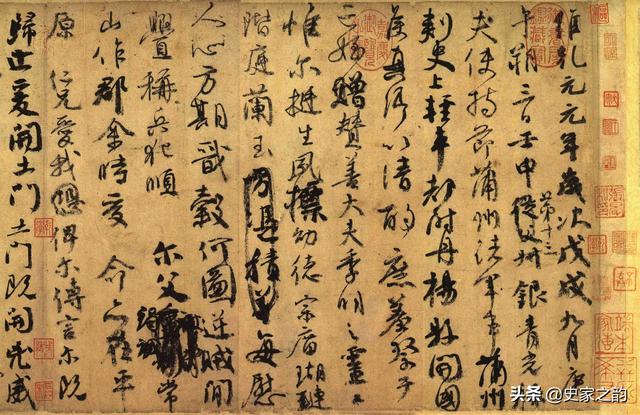 維乾元元年歲次戊戌九月庚
午朔三日壬申第十三從父銀青光
夫使持節蒲州諸軍事蒲州
刺史上輕車都尉丹楊縣開國
侯真卿以清酌庶羞祭于
亡姪贈贊善大夫季明之靈曰
惟爾挺生夙標幼德宗廟瑚璉
階庭蘭玉方憑積善每慰
人心方期戩穀何圖逆賊間
釁稱兵犯順 爾父竭誠常
山作郡余時受 命亦在平
原 仁兄愛我俾爾傳言爾既
歸止爰開土門土門既開兇威
头条 @史家之韵